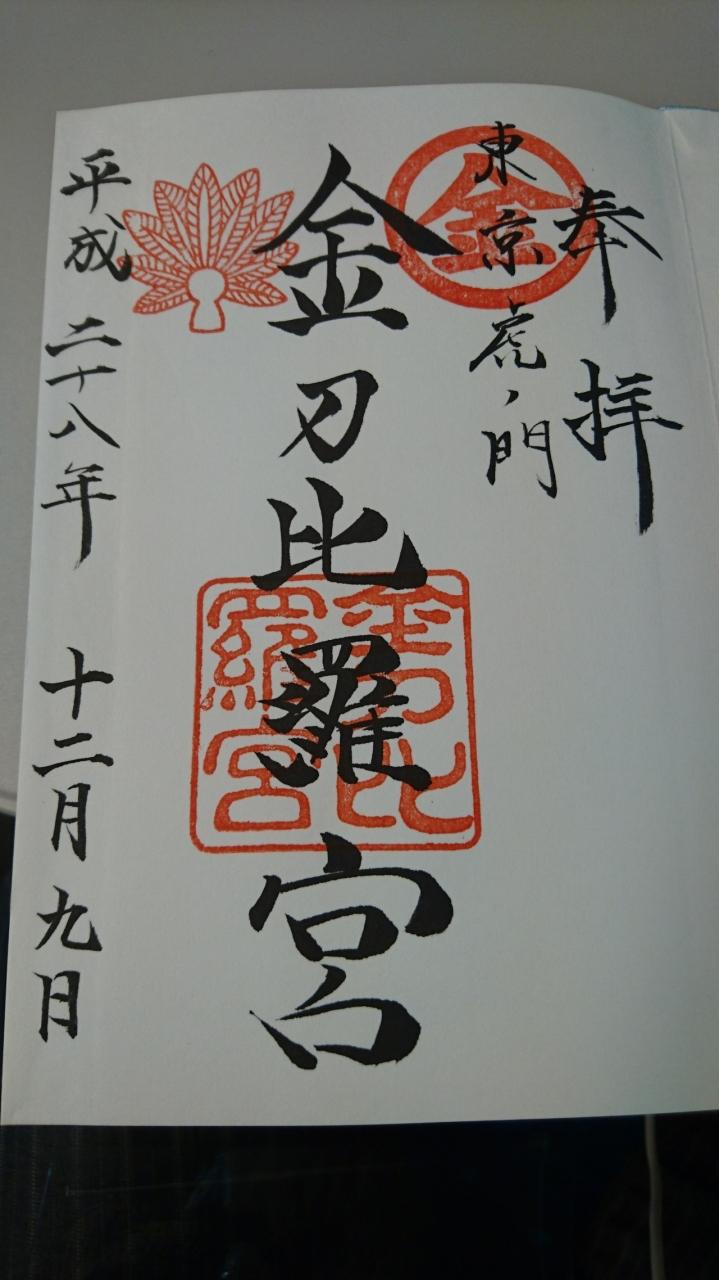 奉拝
東京虎ノ門
金
金刀比羅宮
金刀比羅宮
平成二十八年 十二月九日